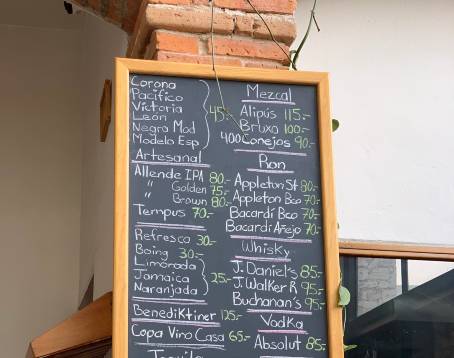 Corona
Pacifico
Victoria
León
Negra Mod
Modelo Esp
45.-
Artesanal
Allende IPA 80.-
" Golden 75.-
" Brown 80.-
Tempus 70.-
Refresco 30.-
Boing 30.-
Limonada
Jamaica
Naranjada
25.-
Benediktiner 125.-
Copa Vino Casa 65.-
Tequila
Mezcal
Alipús 115.-
Bruxo 100.-
400 Conejos 90.-
Ron
Appleton St 80.-
Appleton Bco 70.-
Bacardí Bco 70.-
Bacardí Añejo 70.-
Whisky
J. Daniel's 85.-
J. Walker R 95.-
Buchanan's 95.-
Vodka
Absolut 85.-